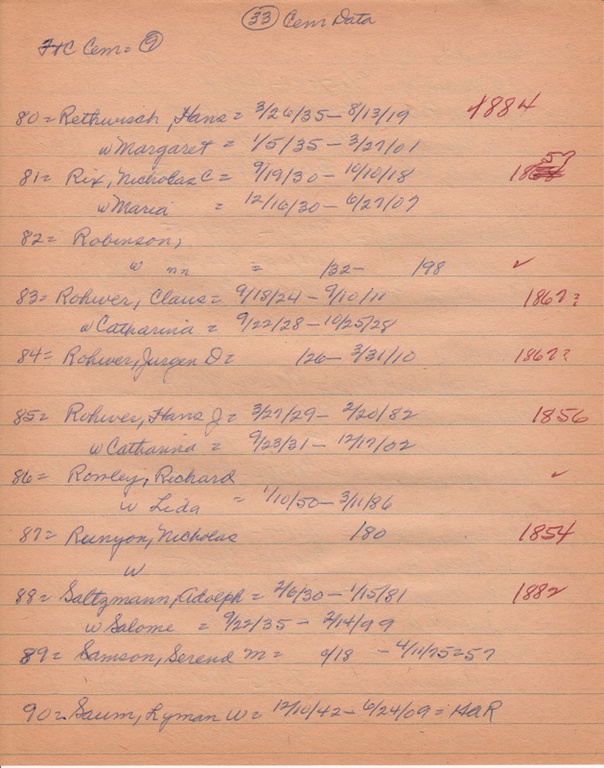 (33) Cem Data
F+C Cem = (9)
80 = Rethwisch, Hans = 3/26/35 - 8/13/19 1884
w Margaret = 1/5/35 - 3/27/01
81 = Rix, Nicholas C = 9/19/30 - 10/10/18 18
w Maria = 12/16/30 - 6/27/07
82 = Robinson,
w nn = /32 - /98 ✓
83 = Rohwer, Claus = 9/18/24 - 9/10/11 1867?
w Catharina = 9/22/28 - 10/25/28
84 = Rohwer, Jurgen D = /26 - 3/31/10 1867?
85 = Rohwer, Hans J = 3/27/29 - 2/20/82 1856
w Catharina = 9/23/31 - 12/17/02
86 = Rowley, Richard ✓
w Lida = 1/10/50 - 3/11/86
87 = Runyon, Nicholas /80 1854
w
88 = Saltzmann, Adolph = 2/6/30 - 1/15/81 1882
w Salome = 9/22/35 - 2/14/99
89 = Samson, Serend M = /18 - 4/11/75 = 57
90 = Saum, Lyman W = 12/10/42 - 6/24/09 = GAR